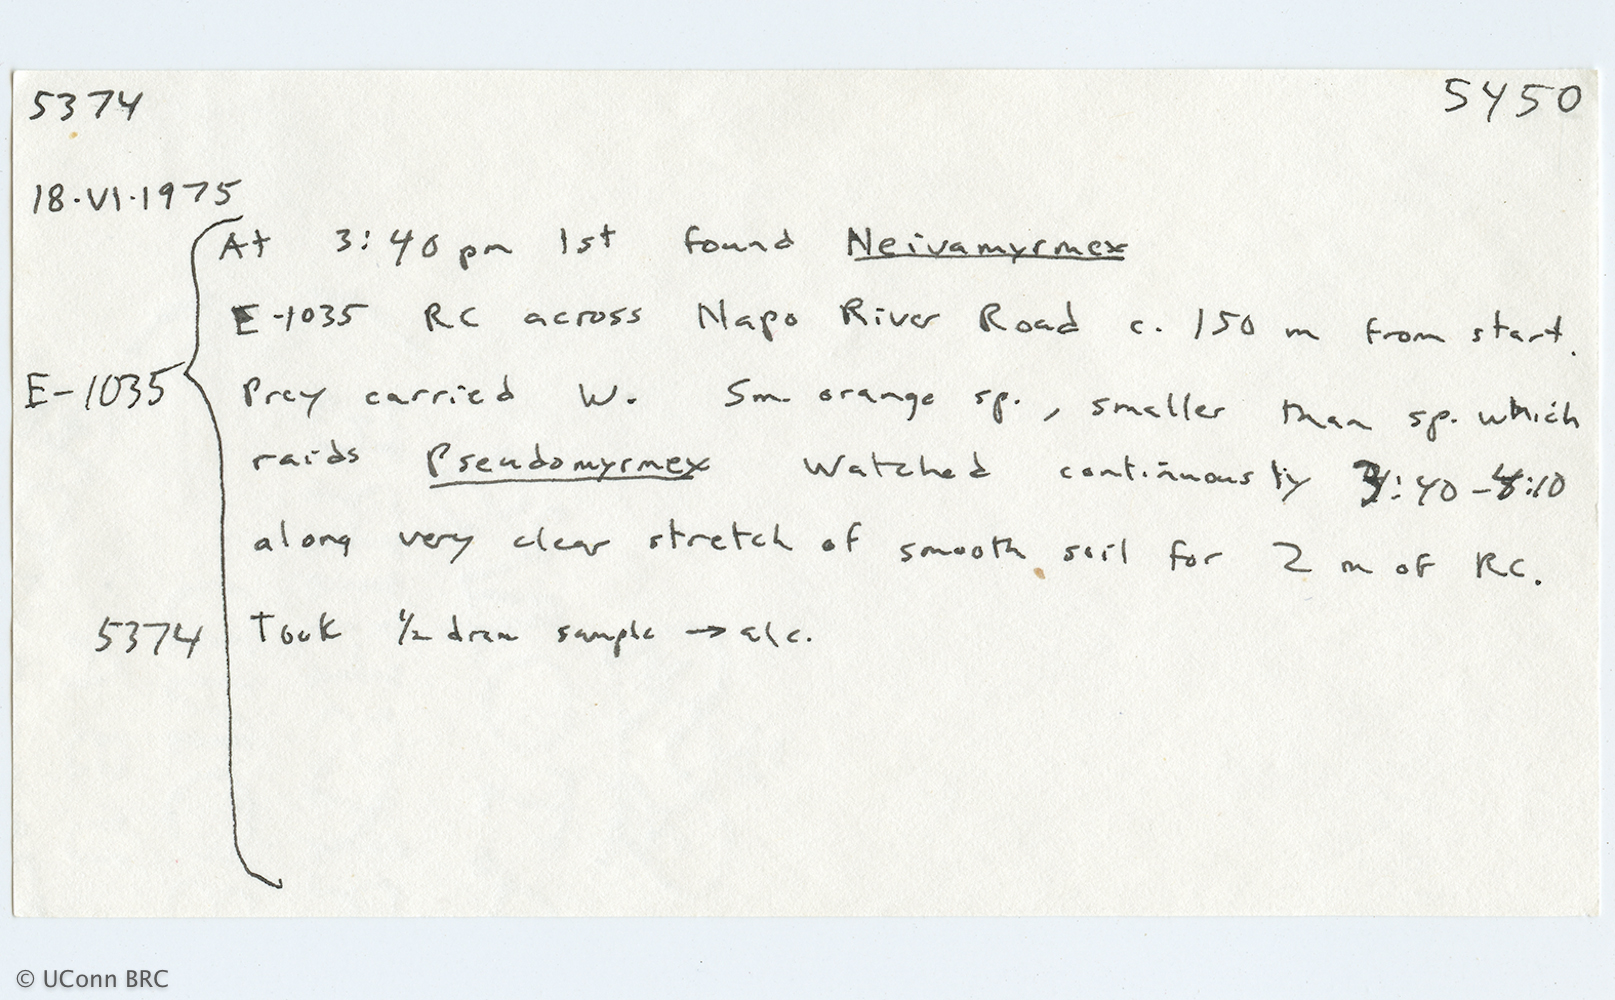 5374 5450
18.VI.1975
At 3:40 pm 1st found Neivamyrmex
E-1035 RC across Napo River Road c. 150 m from start.
E-1035 Prey carried W. Sm. orange sp., smaller than sp. which
raids Pseudomyrmex Watched continuously 3:40-4:10
along very clear stretch of smooth soil for 2 m of RC.
5374 Took 1/2 dram sample → alc.
© UConn BRC